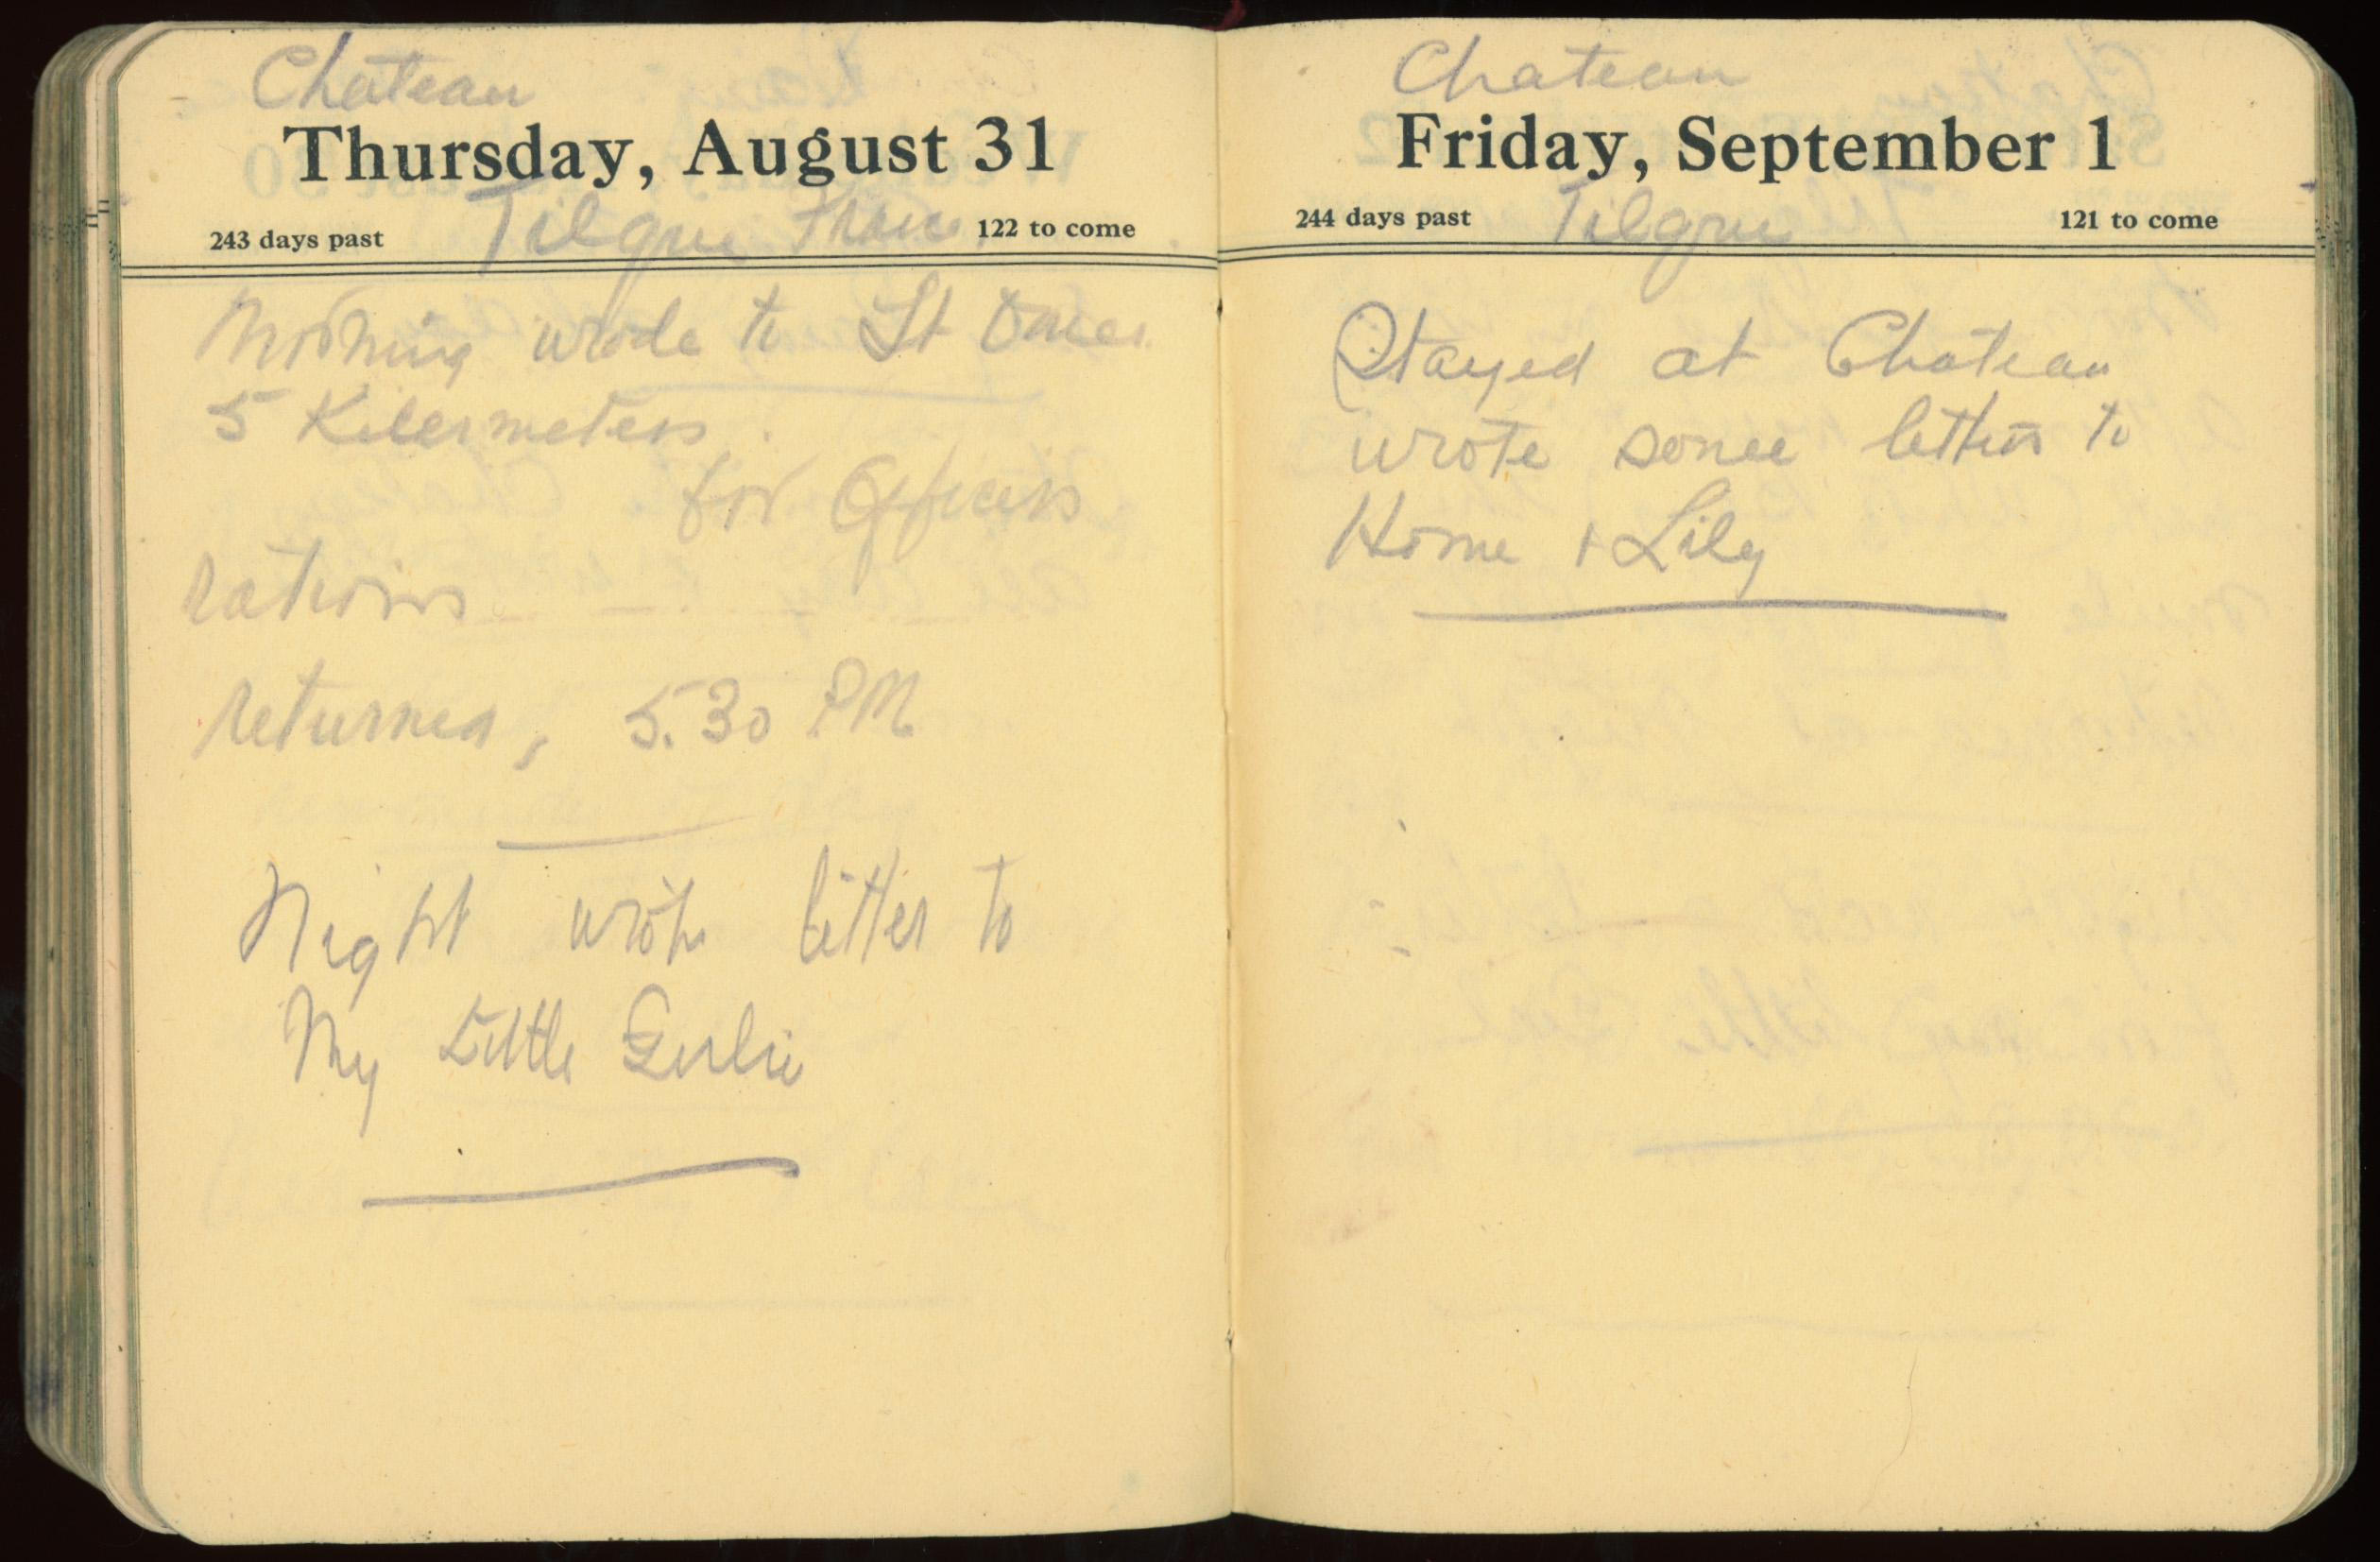 Chateau
Thursday, August 31
243 days past Tilque France 122 to come
Morning wrode to St Omer
5 Kilermeters
for Officers
rations
returned, 5.30 PM
Night wrote letter to
My Little
Chateau
Friday, September 1
244 days past Tilque 121 to come
Stayed at Chateau
wrote some letters to
Home + Lily